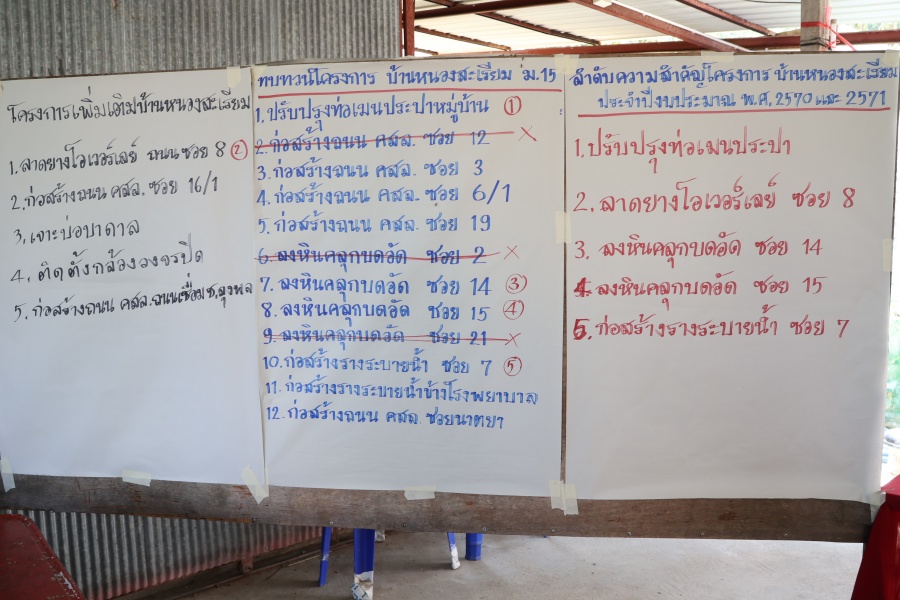 โครงการเพิ่มเติมบ้านหนองสะเรียม
1. ลาดยางโอเวอร์เลย์ ถนนซอย 8 ②
2. ก่อสร้างถนน คสล. ซอย 16/1
3. เจาะบ่อบาดาล
4. ติดตั้งกล้องวงจรปิด
5. ก่อสร้างถนน คสล. ถนนเชื่อม ซ.ลุงพล
ทบทวนโครงการ บ้านหนองสะเรียม ม.15
1. ปรับปรุงท่อเมนประปาหมู่บ้าน ①
2. ก่อสร้างถนน คสล. ซอย 12 ×
3. ก่อสร้างถนน คสล. ซอย 3
4. ก่อสร้างถนน คสล. ซอย 6/1
5. ก่อสร้างถนน คสล. ซอย 19
6. ลงหินคลุกบดอัด ซอย 2 ×
7. ลงหินคลุกบดอัด ซอย 14 ③
8. ลงหินคลุกบดอัด ซอย 15 ④
9. ลงหินคลุกบดอัด ซอย 21 ×
10. ก่อสร้างรางระบายน้ำ ซอย 7 ⑤
11. ก่อสร้างรางระบายน้ำข้างโรงพยาบาล
12. ก่อสร้างถนน คสล. ซอยนาตยา
ลำดับความสำคัญโครงการ บ้านหนองสะเรียม
ประจำปีงบประมาณ พ.ศ. 2570 และ 2571
1. ปรับปรุงท่อเมนประปา
2. ลาดยางโอเวอร์เลย์ ซอย 8
3. ลงหินคลุกบดอัด ซอย 14
4. ลงหินคลุกบดอัด ซอย 15
5. ก่อสร้างรางระบายน้ำ ซอย 7